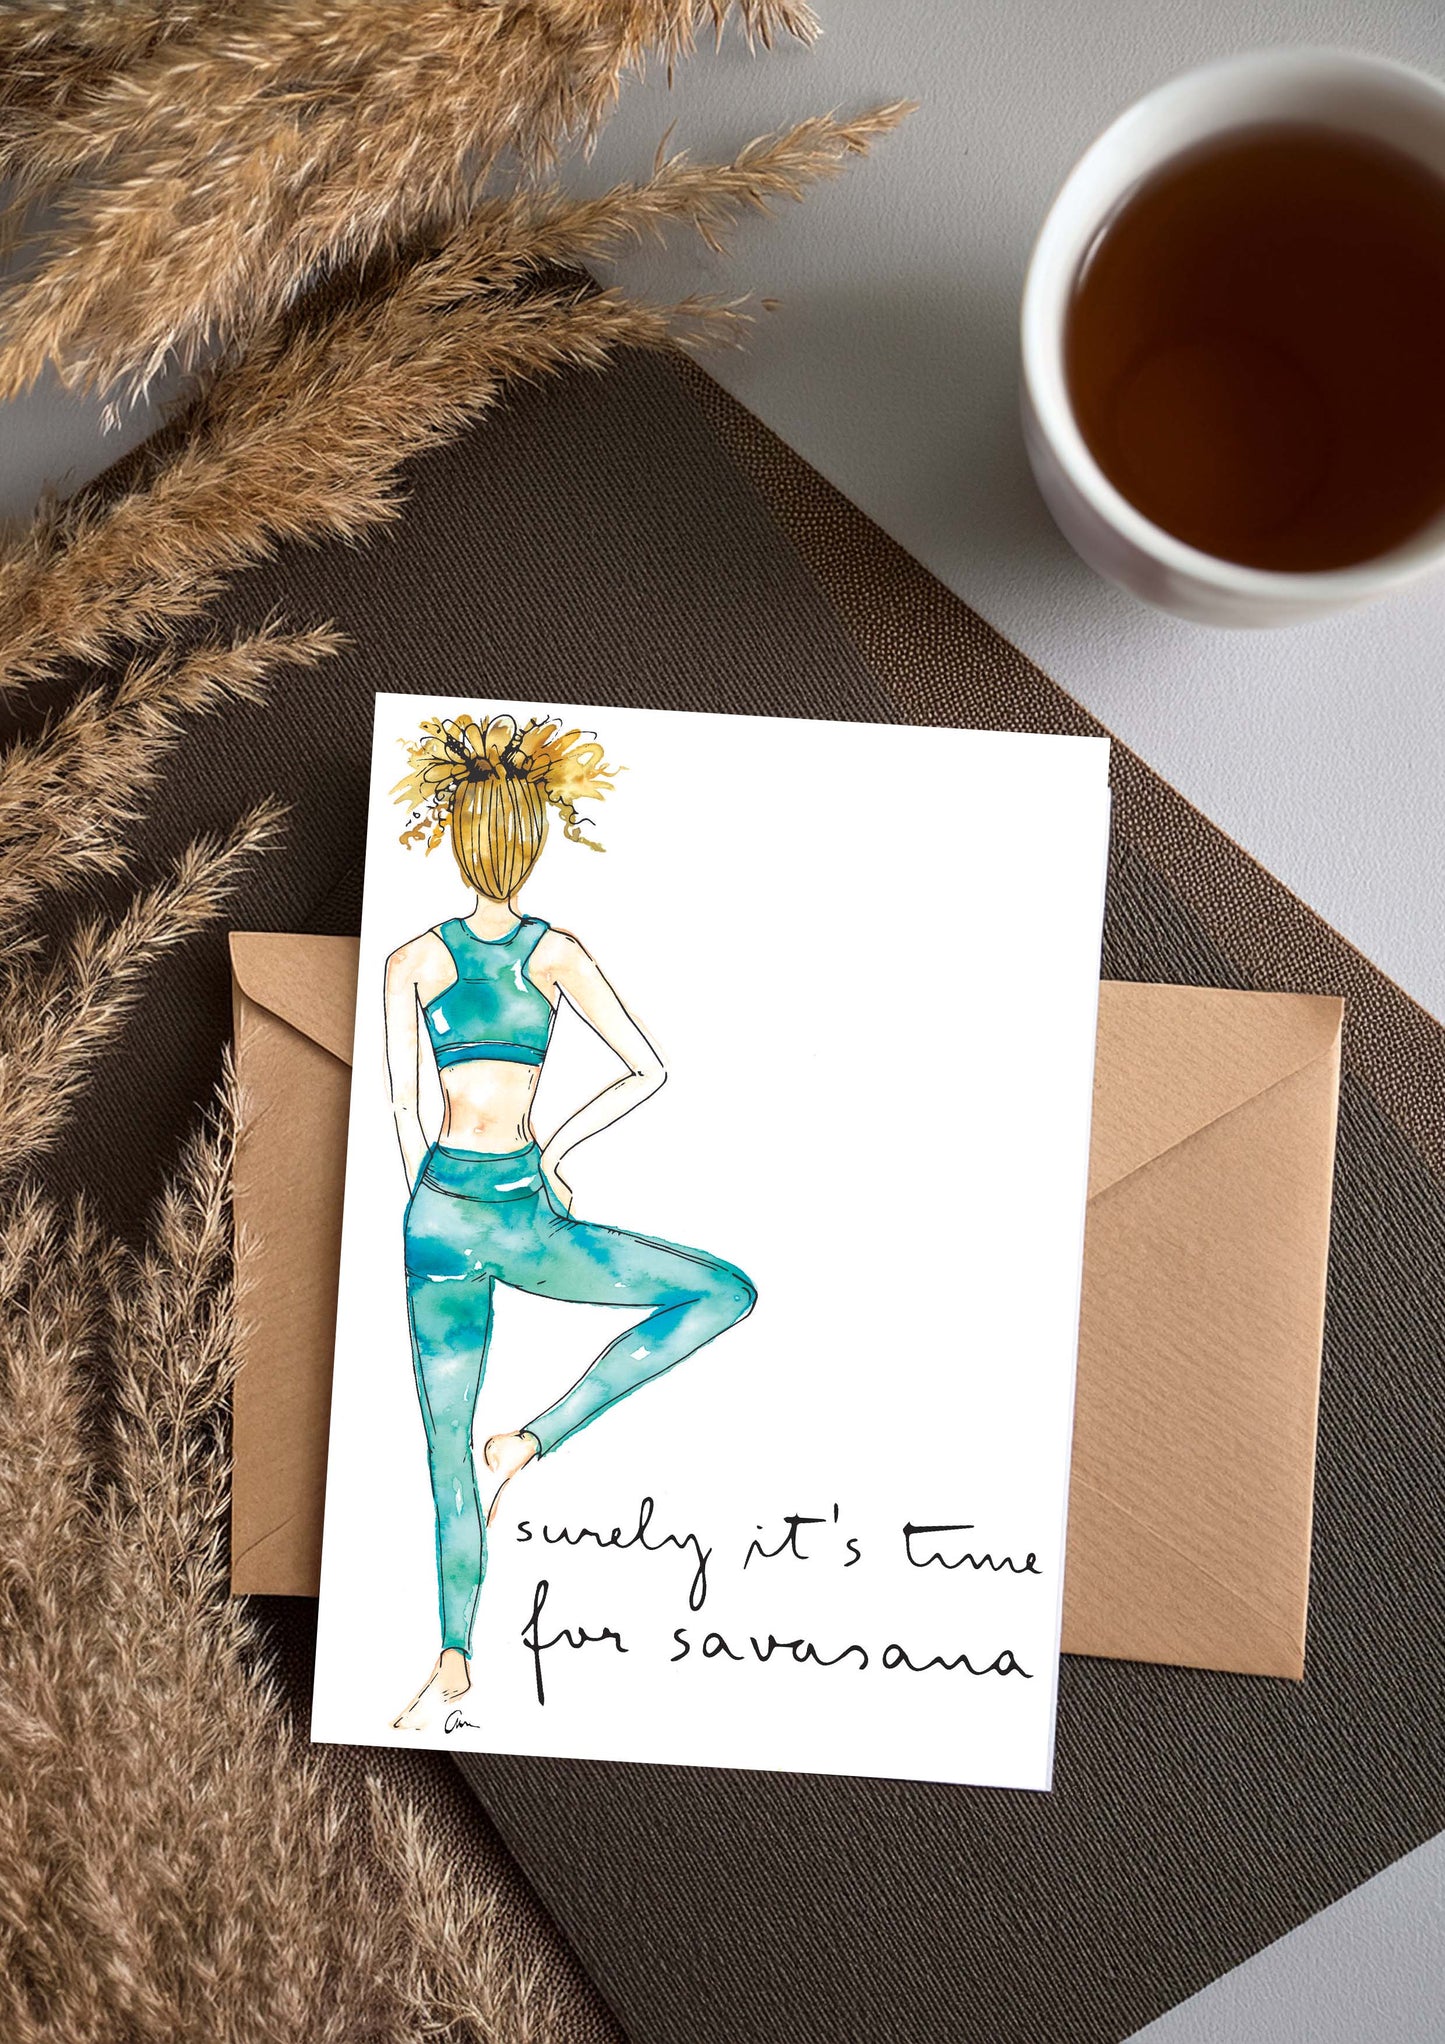 surely it's time
for savasana